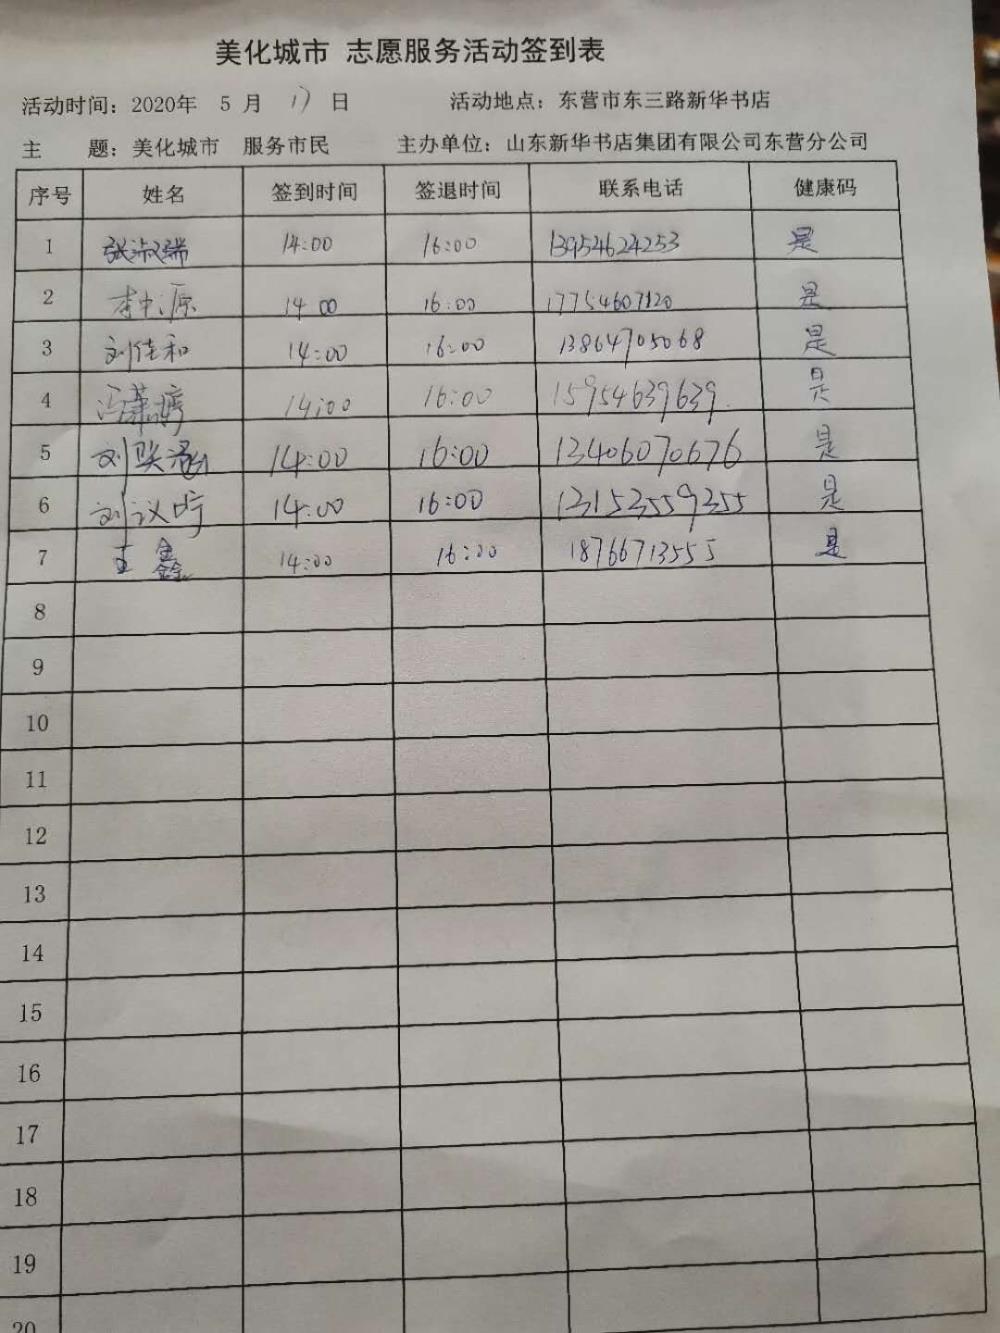 美化城市 志愿服务活动签到表
活动时间：2020年 5 月 17 日 活动地点：东营市东三路新华书店
主 题：美化城市 服务市民 主办单位：山东新华书店集团有限公司东营分公司
序号 姓名 签到时间 签退时间 联系电话 健康码
1 张淑瑞 14:00 16:00 13954624253 是
2 李中源 14 00 16:00 17754607120 是
3 刘佳和 14:00 16:00 13864705068 是
4 冯潇婷 14:00 16:00 15954639639 是
5 刘 14:00 16:00 13406070676 是
6 刘议 14:00 16:00 13153559355 是
7 王鑫 14:00 16:00 18766713555 是
8
9
10
11
12
13
14
15
16
17
18
19
20